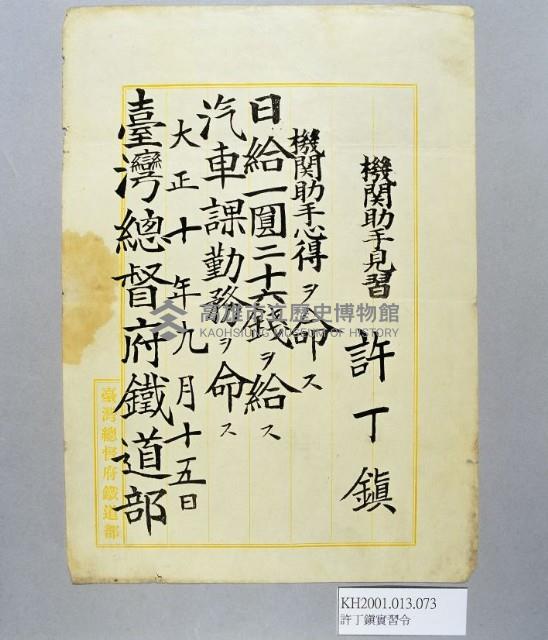 機関助手見習 許丁鎮
機関助手心得ヲ命ス
日給一圓二十六銭ヲ給ス
汽車課勤務ヲ命ス
大正十年九月十五日
臺灣總督府鐵道部
臺灣總督府鐵道部
高雄市立歷史博物館
KAOHSIUNG MUSEUM OF HISTORY
KH2001.013.073
許丁鎮實習令